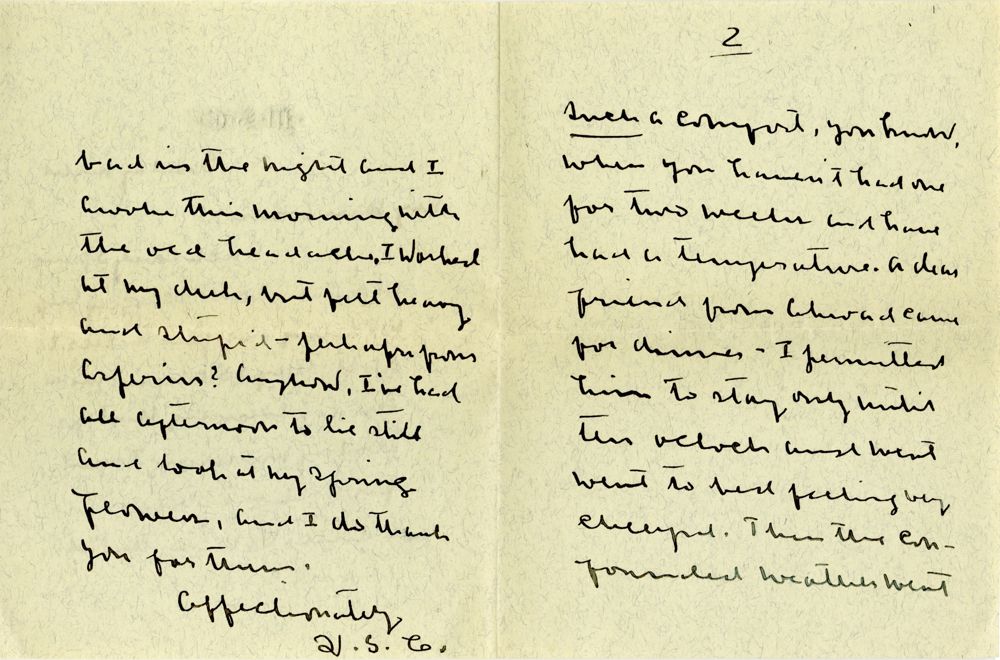 2
Such a comfort, you know,
when you haven't had one
for two weeks and have
had a temperature. A dear
friend from abroad came
for dinner - I permitted
him to stay only until
ten oclock and went
went to bed feeling very
cheerful. Then the con-
founded weather went
bad in the night and I
awoke this morning with
the old headache, I worked
at my desk, but felt heavy
and stupid - perhaps from
asperin? Anyhow, I've had
all afternoon to lie still
and look at my spring
flowers, and I do thank
you for them.
Affectionately
W. S. C.